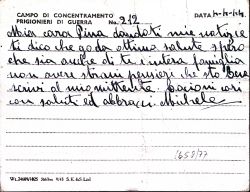 CAMPO DI CONCENTRAMENTO
PRIGIONIERI DI GUERRA No. 212 DATA
Mia cara Pina dandoti mie notizie
ti dico che godo ottima salute spero
che sia anche di te e intera famiglia
non avere strani pensieri che sto bene
scrivi al mio mittente, bacioni cari
con saluti ed abbracci Michele
1658/77